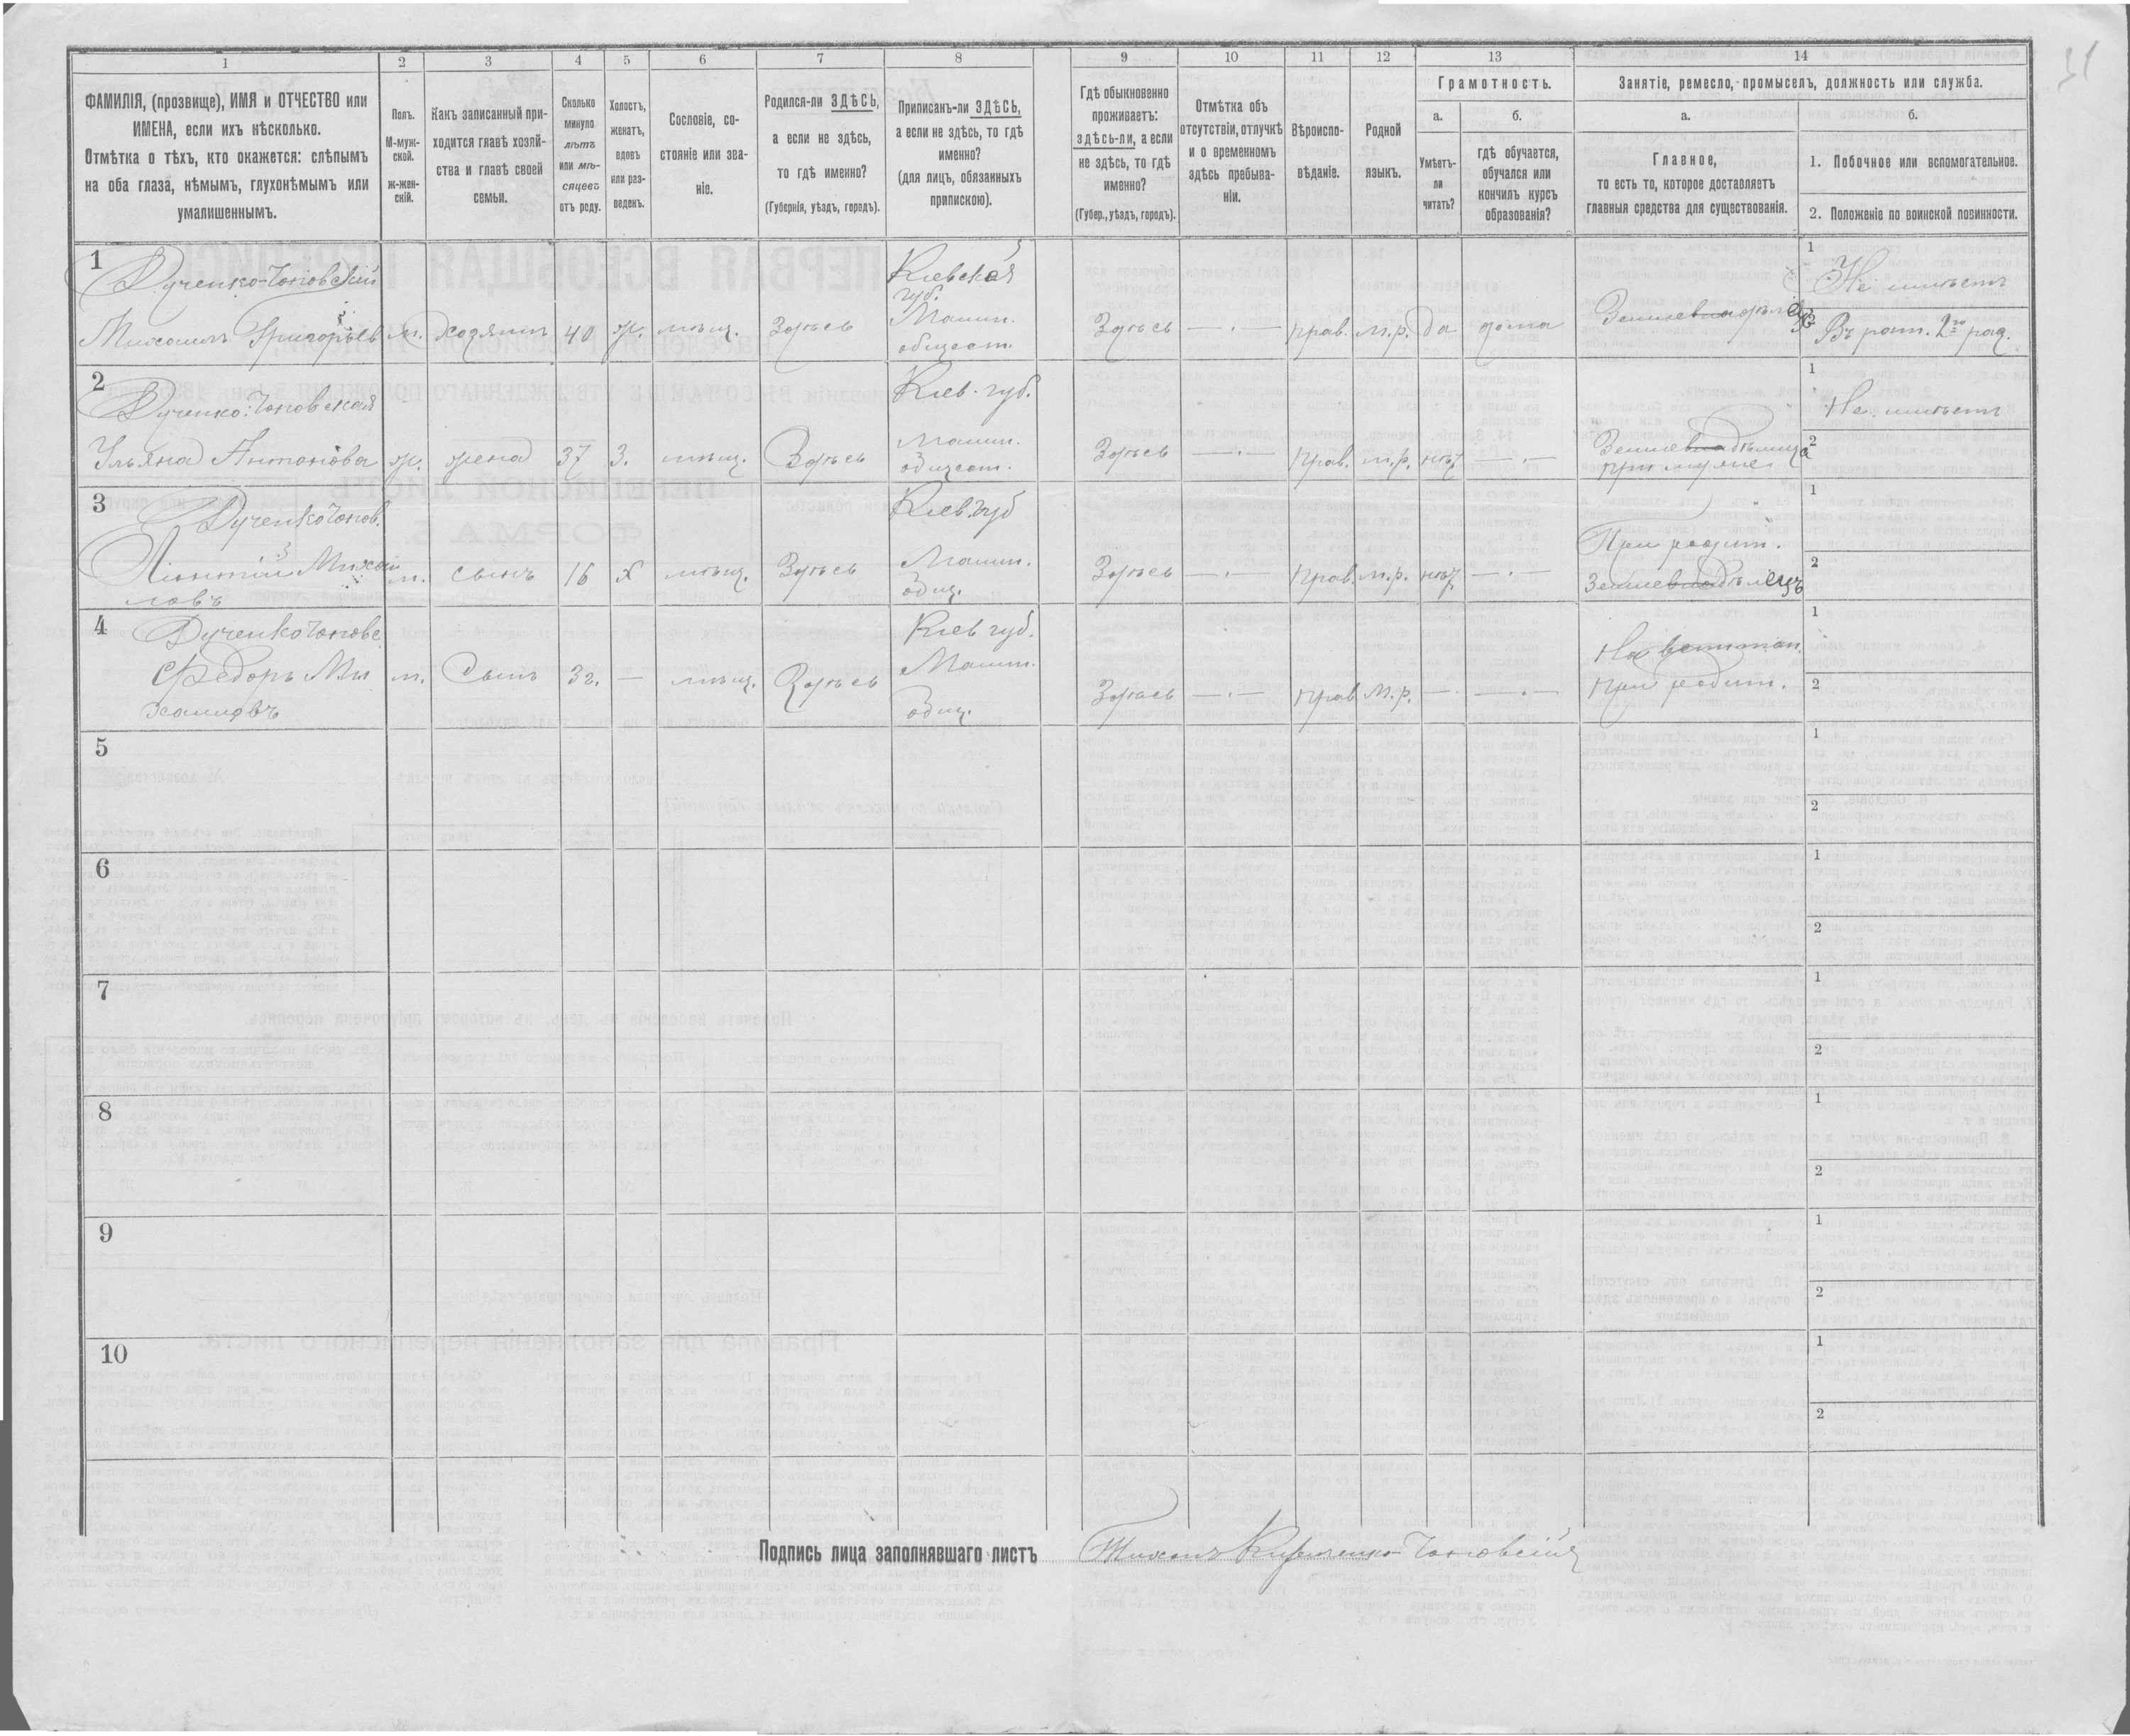 31
1
2
3
4
5
6
7
8
9
10
11
12
13
14
ФАМИЛІЯ, (прозвище), ИМЯ и ОТЧЕСТВО или
ИМЕНА, если ихъ нѣсколько.
Отмѣтка о тѣхъ, кто окажется: слѣпымъ
на оба глаза, нѣмымъ, глухонѣмымъ или
умалишеннымъ.
Полъ.
М-муж-
ской.
ж-жен-
скій.
Какъ записанный при-
ходится главѣ хозяй-
ства и главѣ своей
семьи.
Сколько
минуло
лѣтъ
или мѣ-
сяцевъ
отъ роду.
Холостъ,
женатъ,
вдовъ
или раз-
веденъ.
Сословіе, со-
стояніе или зва-
ніе.
Родился-ли ЗДѢСЬ,
а если не здѣсь,
то гдѣ именно?
(Губернія, уѣздъ, городъ).
Приписанъ-ли ЗДѢСЬ,
а если не здѣсь, то гдѣ
именно?
(для лицъ, обязанныхъ
припискою).
Гдѣ обыкновенно
проживаетъ:
здѣсь-ли, а если
не здѣсь, то гдѣ
именно?
(Губер., уѣздъ, городъ).
Отмѣтка объ
отсутствіи, отлучкѣ
и о временномъ
здѣсь пребыва-
ніи.
Вѣроиспо-
вѣданіе.
Родной
языкъ.
Грамотность.
а.
Умѣетъ-
ли
читать?
б.
гдѣ обучается,
обучался или
кончилъ курсъ
образованія?
Занятіе, ремесло, промыселъ, должность или служба.
а.
Главное,
то есть то, которое доставляетъ
главныя средства для существованія.
б.
1. Побочное или вспомогательное.
2. Положеніе по воинской повинности.
1
Михаилъ Григорьев м. хозяинъ 40 ж. мѣщ. Здѣсь
Кіевская
губ.
общест.
Здѣсь — . — прав. м.р. да дома
1
Не имѣетъ
Въ рат. 2го раз.
2
Ульяна Антонова ж. жена 37 З. мѣщ. Здѣсь
Кіев. губ.
общест.
Здѣсь — . — Прав. м.р. нѣт — . —
при мужѣ
1
Не имѣетъ
2
3
м. сынъ 16 Х мѣщ. Здѣсь
Кіев. губ
общ.
Здѣсь — . — Прав. м.р. нѣт — . —
При родит.
1
2
4
Федоръ Ми
хаиловъ
м. Сынъ 3г. — мѣщ. Здѣсь
Кіев губ.
общ.
Здѣсь — . — Прав м.р. — — . —
На воспитан.
При родит.
1
2
5
1
2
6
1
2
7
1
2
8
1
2
9
1
2
10
1
2
Подпись лица заполнявшаго листъ